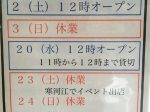 2（土）12時オープン
3（日）休業
20（水）12時オープン
11時から12時まで貸切
23（土）休業
寒河江でイベント出店
24（日）休業